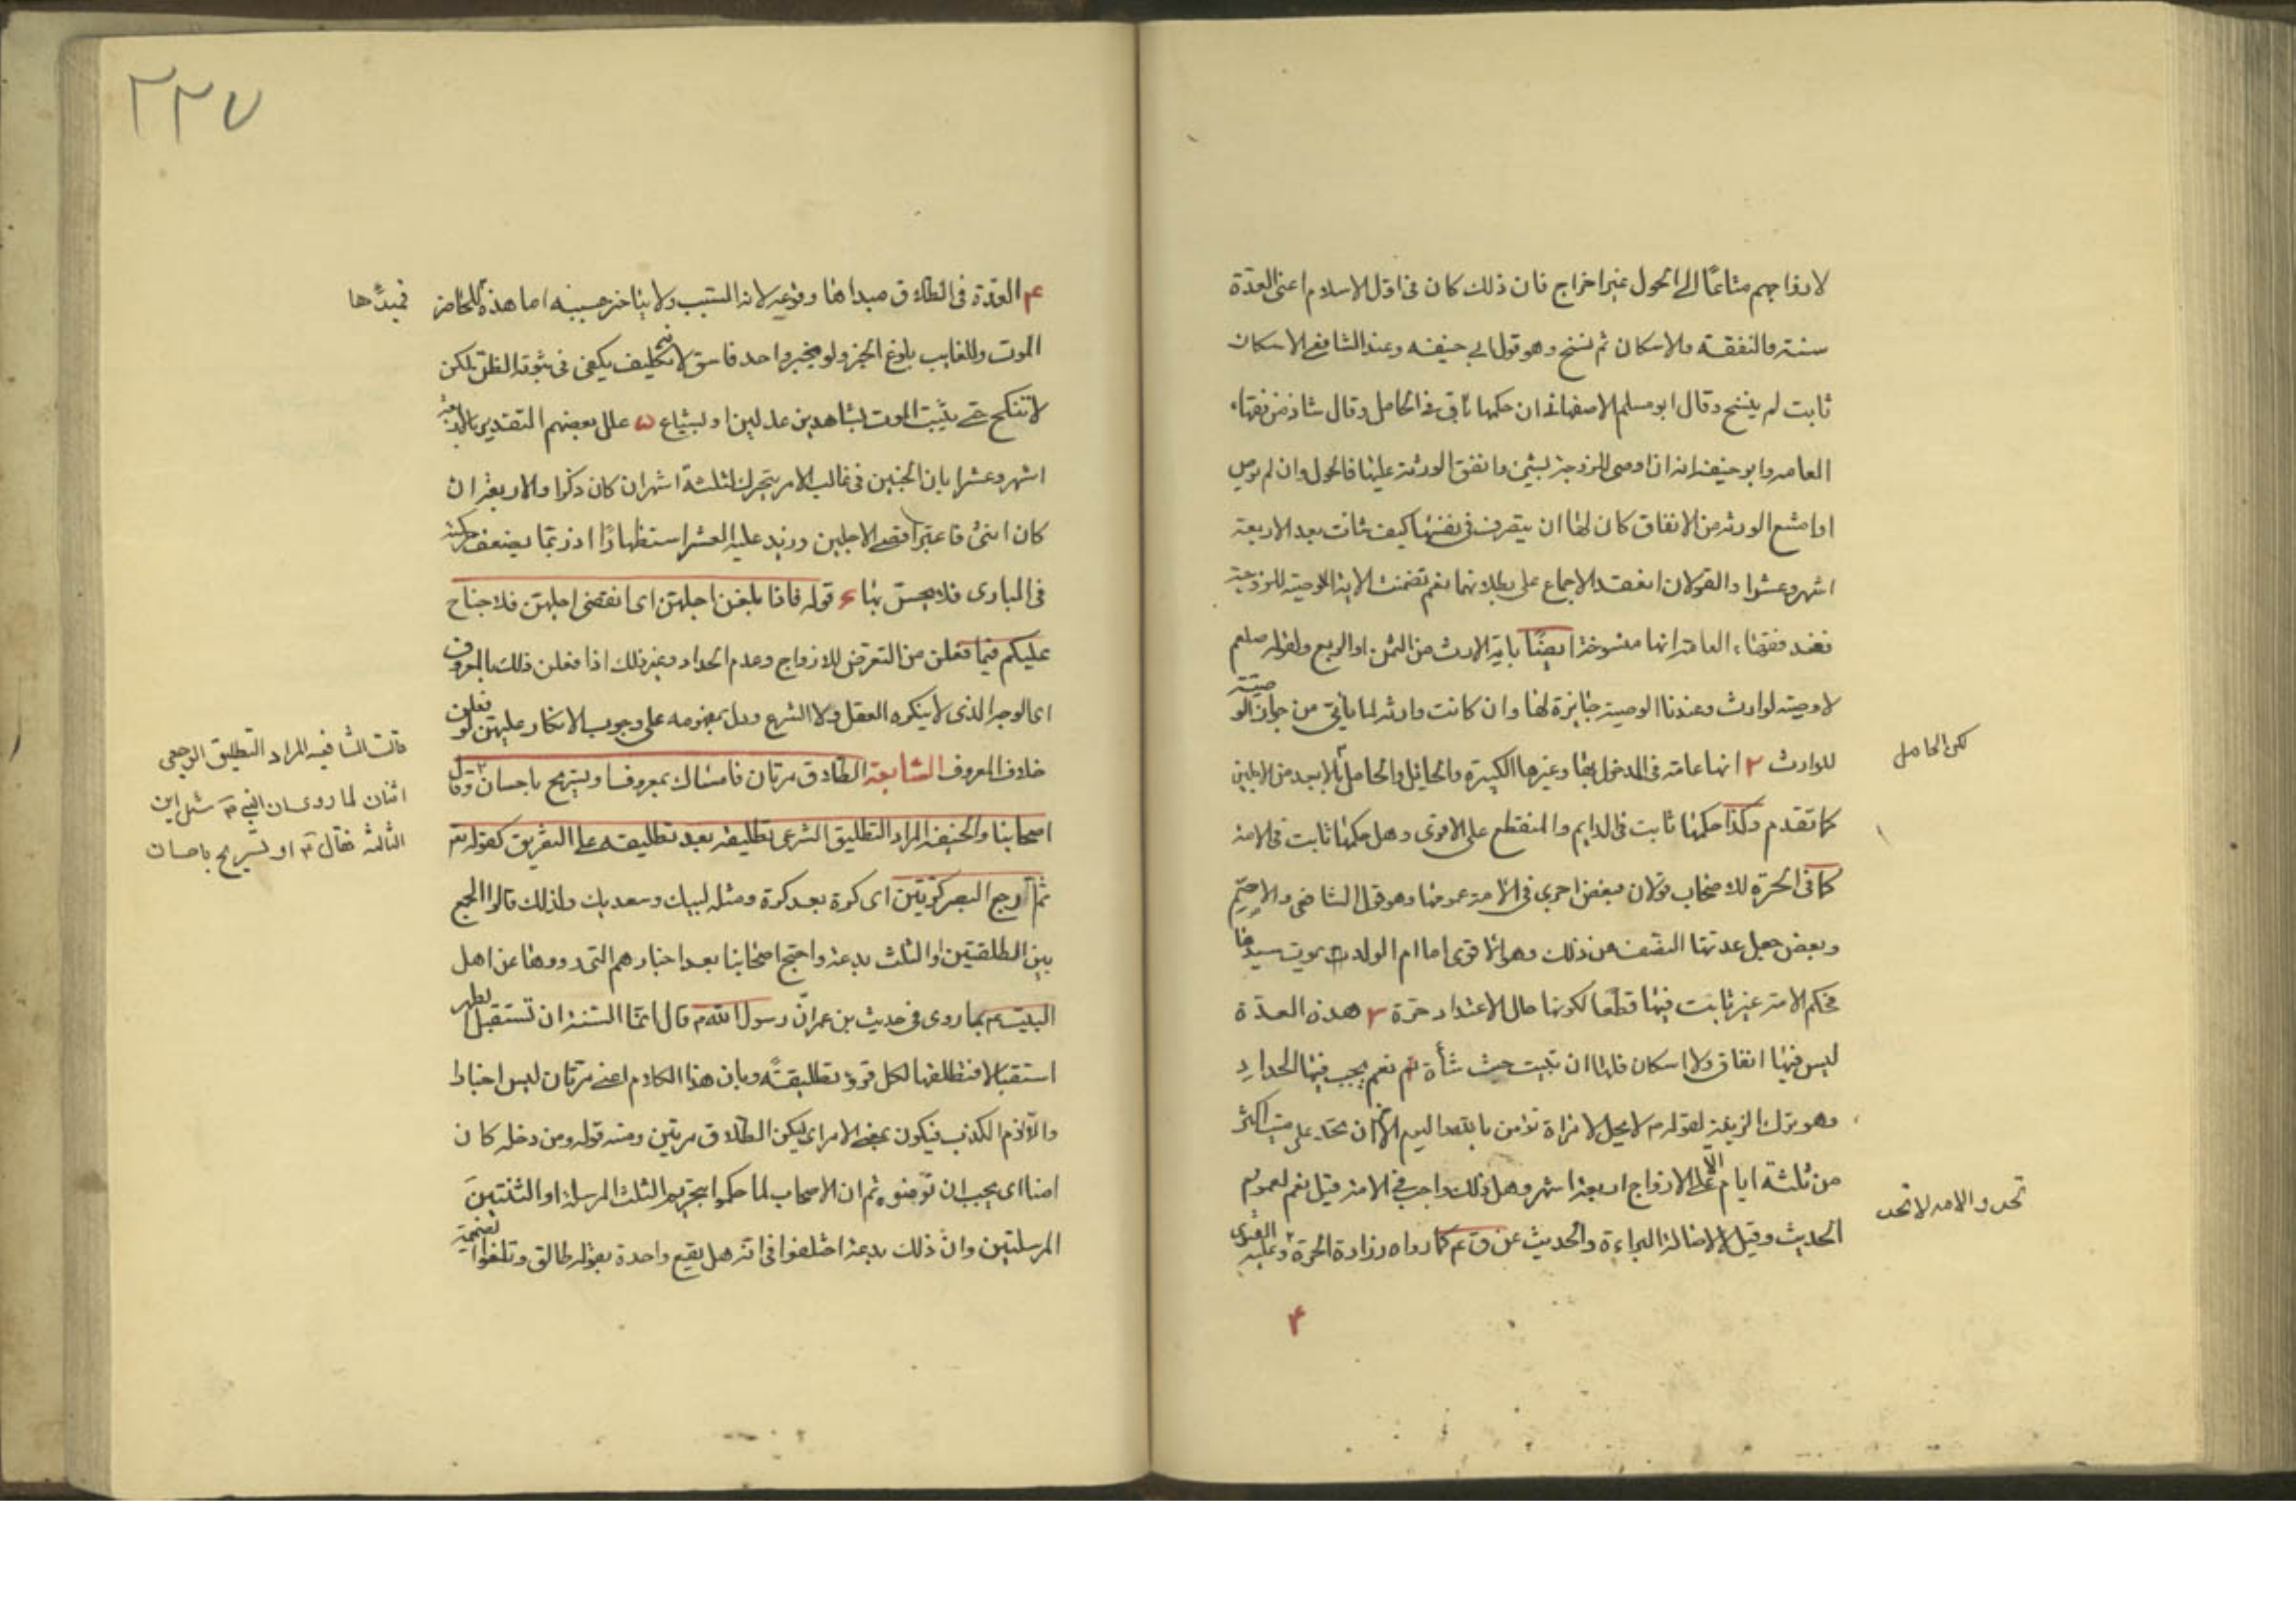 لازواجهم متاعًا الى الحول غير اخراج فان ذلك كان فى اول الاسلام اعنى العدة
سنة والنفقة والاسكان ثم نسخ وهو قول ابى حنيفه وعند الشافعى الاسكان
ثابت لم ينسخ وقال ابو مسلم الاصفهانى ان حكمها باق فى الحامل وقال شاذ من فقهاء
العامه وابو حنيفه انه ان اوصى للزوجة بشئ وانفق الورثة عليها فالحول وان لم يوص
او امتنع الورثه من الانفاق كان لها ان يتصرف فى نفسها كيف شائت بعد الاربعة
اشهر وعشرا والقولان انعقد الاجماع على بطلانهما نعم تضمنت الاية الوصية للزوجة
فعند فقهاء العامة انها منسوخة ايضًا باية الارث من الثمن او الربع ولقوله صلعم
لا وصية لوارث وعندنا الوصية جايزة لها وان كانت وارثه لما ياتى من جواز الوصيّة
للوارث ٢ انها عامة فى المدخول بها وغيرها الكبيرة والحائل والحامل بالابعد من الاجلين
لكن الحامل
كما تقدم وكذا حكمها ثابت فى الدايم والمنقطع على الاقوى وهل حكمها ثابت فى الامة
كما فى الحرة للاصحاب قولان فبعض اجرى فى الامة عمومها وهو قول الشافعى والاصم
وبعض جعل عدتها النصف من ذلك وهو الاقوى اما ام الولد بموت سيدها
فحكم الامة غير ثابت فيها قطعا لكونها حال الاعتداد حرة ٣ هذه العدّة
ليس فيها انفاق ولا اسكان فلها ان تبيت حيث شأة نعم يجب فيها الحداد
وهو ترك الزينة لقوله م لا يحل لامراة تؤمن بالله واليوم الاخر ان تحد على ميت اكثر
من ثلثة ايام الّا على الازواج اربعة اشهر وهل ذلك واجب فى الامة قيل نعم لعموم
تحد والامه لا تحد
الحديث وقيل لا لاصالة البراءة والحديث عن ق ع كما رواه زرارة الحرة وعليه الفتوى
۴
٢٢٧
۴ العدّة فى الطلاق مبداها وقوعه لانه السبب ولا يتاخر مسببه اما هذه للحاضر
فمبدٶها
الموت وللغايب بلوغ الخبر ولو بخبر واحد فاسق لانه تكليف يكفى فى ثبوته الظن لكن
لا تنكح حتى يثبت الموت بشاهدين عدلين او بشياع ۵ علل بعضهم التقدير بالاربعة
اشهر وعشرا بان الجنين فى غالب الامر يتحرك لثلثة اشهر ان كان ذكرا ولاربعة ان
كان انثى فاعتبر اقصى الاجلين وزيد عليه العشر استظهارًا اذ ربما يضعف حركته
فى المبادى فلا يحس بها ۶ قوله فاذا بلغن اجلهن اى انقضى اجلهن فلا جناح
عليكم فيما فعلن من التعرض للازواج وعدم الحداد وغير ذلك اذا فعلن ذلك بالمعروف
اى الوجه الذى لا ينكره العقل ولا الشرع ودل بمفهومه على وجوب الانكار عليهن لو فعلن
خلاف المعروف السّابعة الطلاق مرتان فامساك بمعروف او تسريح باحسان وقال
قالت الشافيه المراد التطليق الرجعى
اثنان لما روى ان النبى م سئل اين
الثالثه فقال ع او تسريح باحسان
اصحابنا والحنيفه المراد التطليق الشرعى تطليقه بعد تطليقه على التفريق كقوله تع
ثم ارجع البصر كرّتين اى كرة بعد كرة ومثله لبيك وسعديك ولذلك قالوا الجمع
بين الطلقتين او الثلث بدعة واحتج اصحابنا بعد اخبارهم التى رووها عن اهل
البيت ع بما روى فى حديث بن عمر انّ رسول الله م قال انما السنة ان تستقبل الطهر
استقبالا فتطلقها لكل قرء تطليقة وبان هذا الكلام اعنى مرتان ليس اخبارا
والّا لزم الكذب فيكون بمعنى الامر اى ليكن الطلاق مرتين ومنه قوله ومن دخله كان
امنا اى يجب ان تؤمنوه ثم ان الاصحاب لما حكموا بتحريم الثلث المرسلة او الثنتين
المرسلتين وان ذلك بدعة اختلفوا فى انه هل يقع واحدة بقوله طالق وتلغوا الضميمة